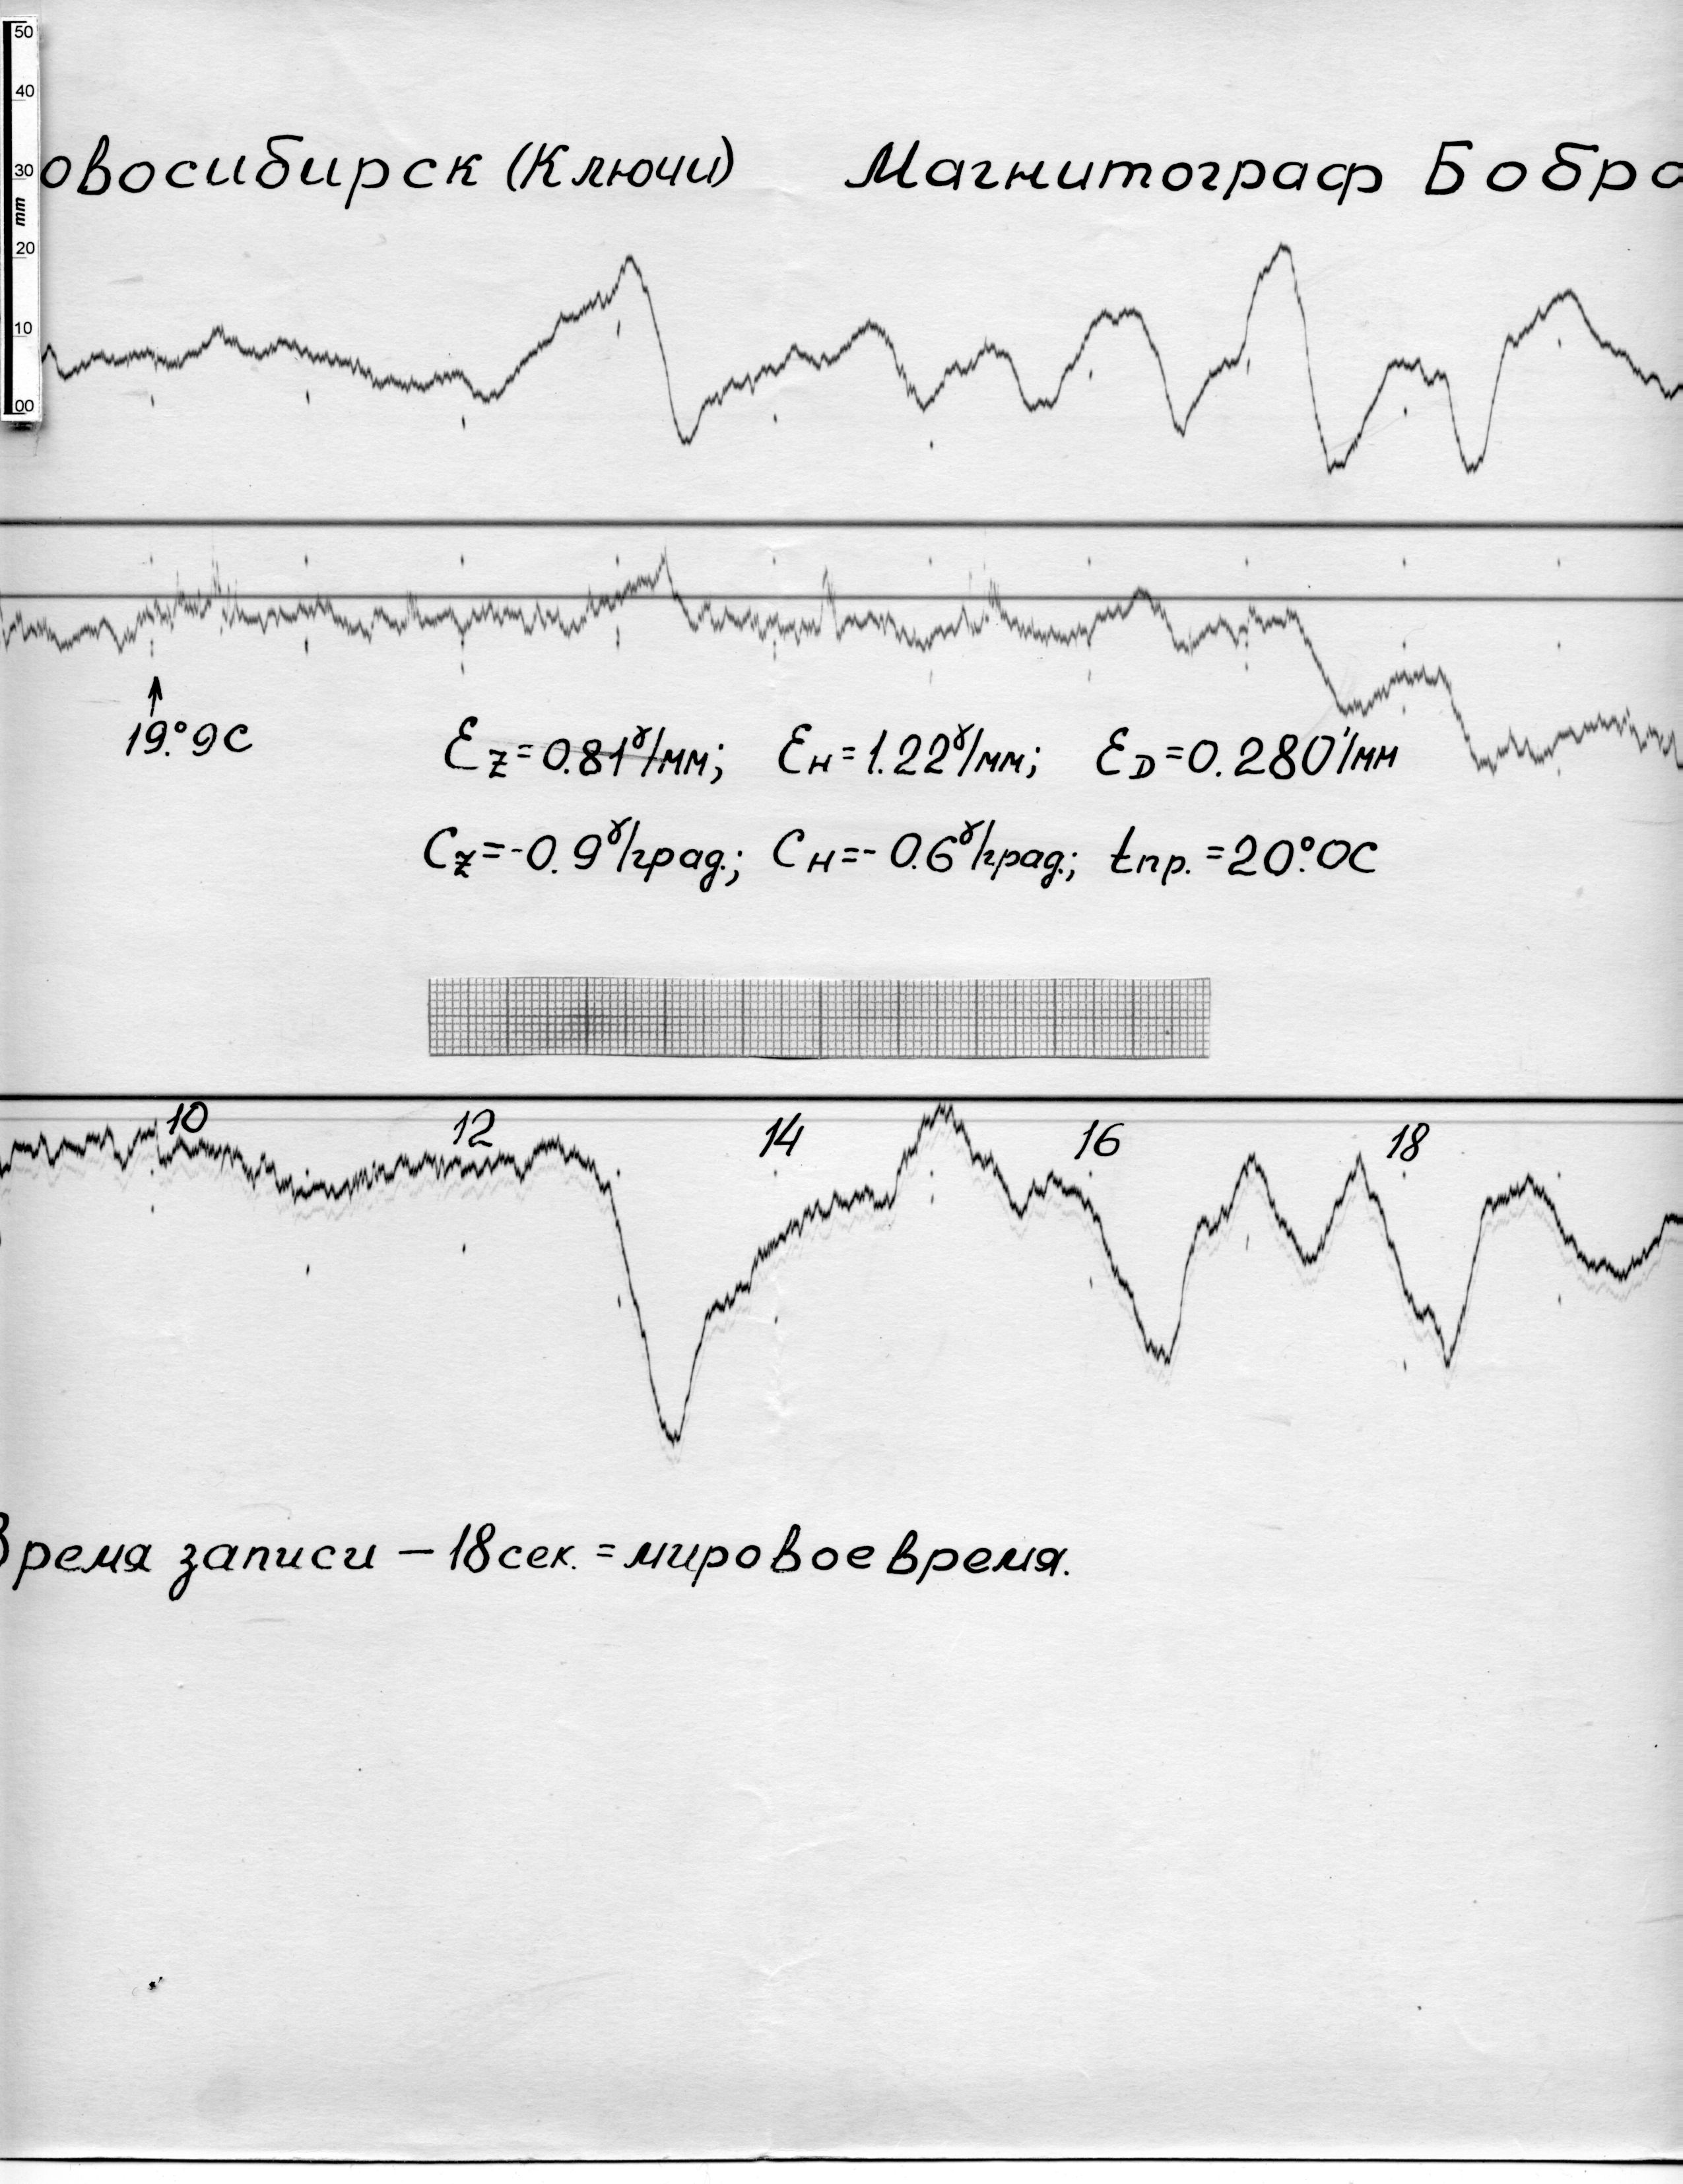 50
40
30
mm
20
10
00
овосибирск (Ключи) Магнитограф Бобро
19.°9С
Ɛz=0.81ᵞ/мм; Ɛн=1.22ᵞ/мм; ƐD=0.280'/мм
Cz=-0.9ᵞ/град.; Cн=-0.6ᵞ/град.; tпр.=20.°0С
10 12 14 16 18
Время записи – 18 сек. = мировое время.